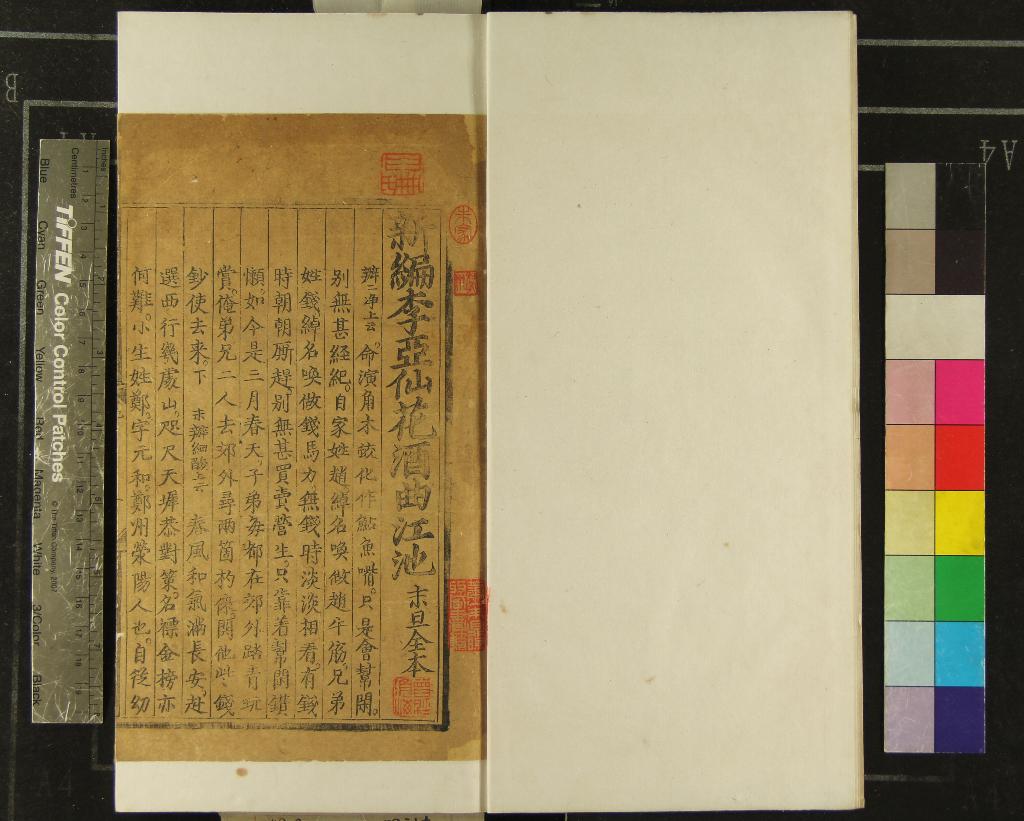 新編李亞仙花酒曲江池 末旦全本
辦二淨上云 命演角木蛟化作鮎魚嘴只是會幫閑
别無甚經紀自家姓趙綽名喚做趙牛觔兄弟
姓錢綽名喚做錢馬力無錢時淡淡相看有錢
時朝朝厮趕别無甚買賣營生只靠着幫閑鑽
懶如今是三月春天子弟每都在郊外踏青玩
賞俺弟兄二人去郊外尋兩箇杓倈閑他些錢
鈔使去来下 末辦細酸上云 春風和氣滿長安赴
選西行幾處山咫尺天墀恭對策名標金榜亦
何難小生姓鄭字元和鄭州滎陽人也自從幼
Centimetres
Inches
TIFFEN Color Control Patches
© The Tiffen Company, 2007
Blue
Cyan
Green
Yellow
Red
Magenta
White
3/Color
Black
B
A4
A4